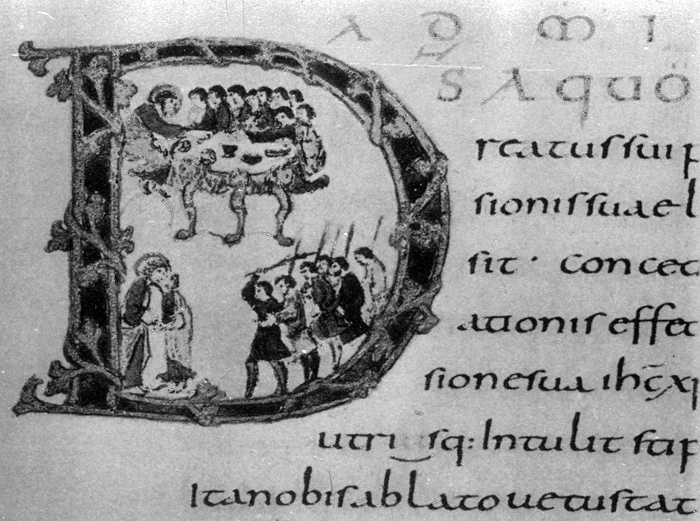 AD MI
D
S A quo
reatus sui p
sionis suae l
sit · conced
ationis effec
sione sua ihc xp
utrisq: Intulit stip
Ita nobis ablato uetustat